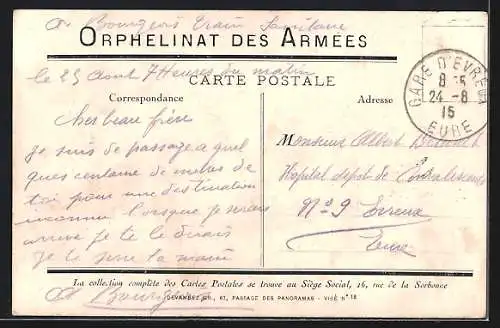 A. Bourgeois Train Sanitaire
ORPHELINAT DES ARMÉES
le 25 Aout 7 Heures du matin
CARTE POSTALE
Correspondance
Adresse
GARE D'EVREUX
24 -8
15
EURE
Cher beau frère
Je suis de passage a quel
ques centaine de metres de
toi pour une destination
inconnu lorsque je serais
arrivé je te le dirais
je te serre la main
A. Bourgeois
Monsieur Albert
Hopital depot de Convalescents
N° 9 Evreux
Eure
La collection complète des Cartes Postales se trouve au Siège Social, 16, rue de la Sorbonne
DEVAMBEZ, GR., 63, PASSAGE DES PANORAMAS - VISÉ N° 18